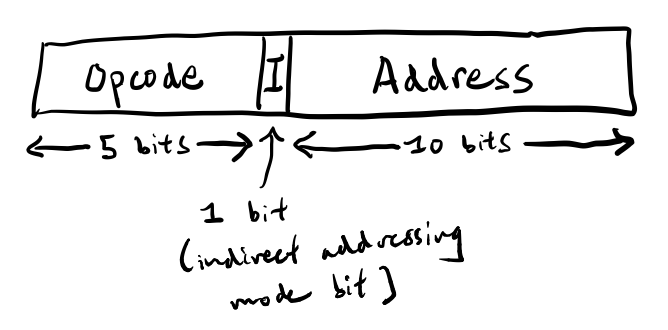 Opcode I Address
5 bits 10 bits
1 bit
(indirect addressing
mode bit)